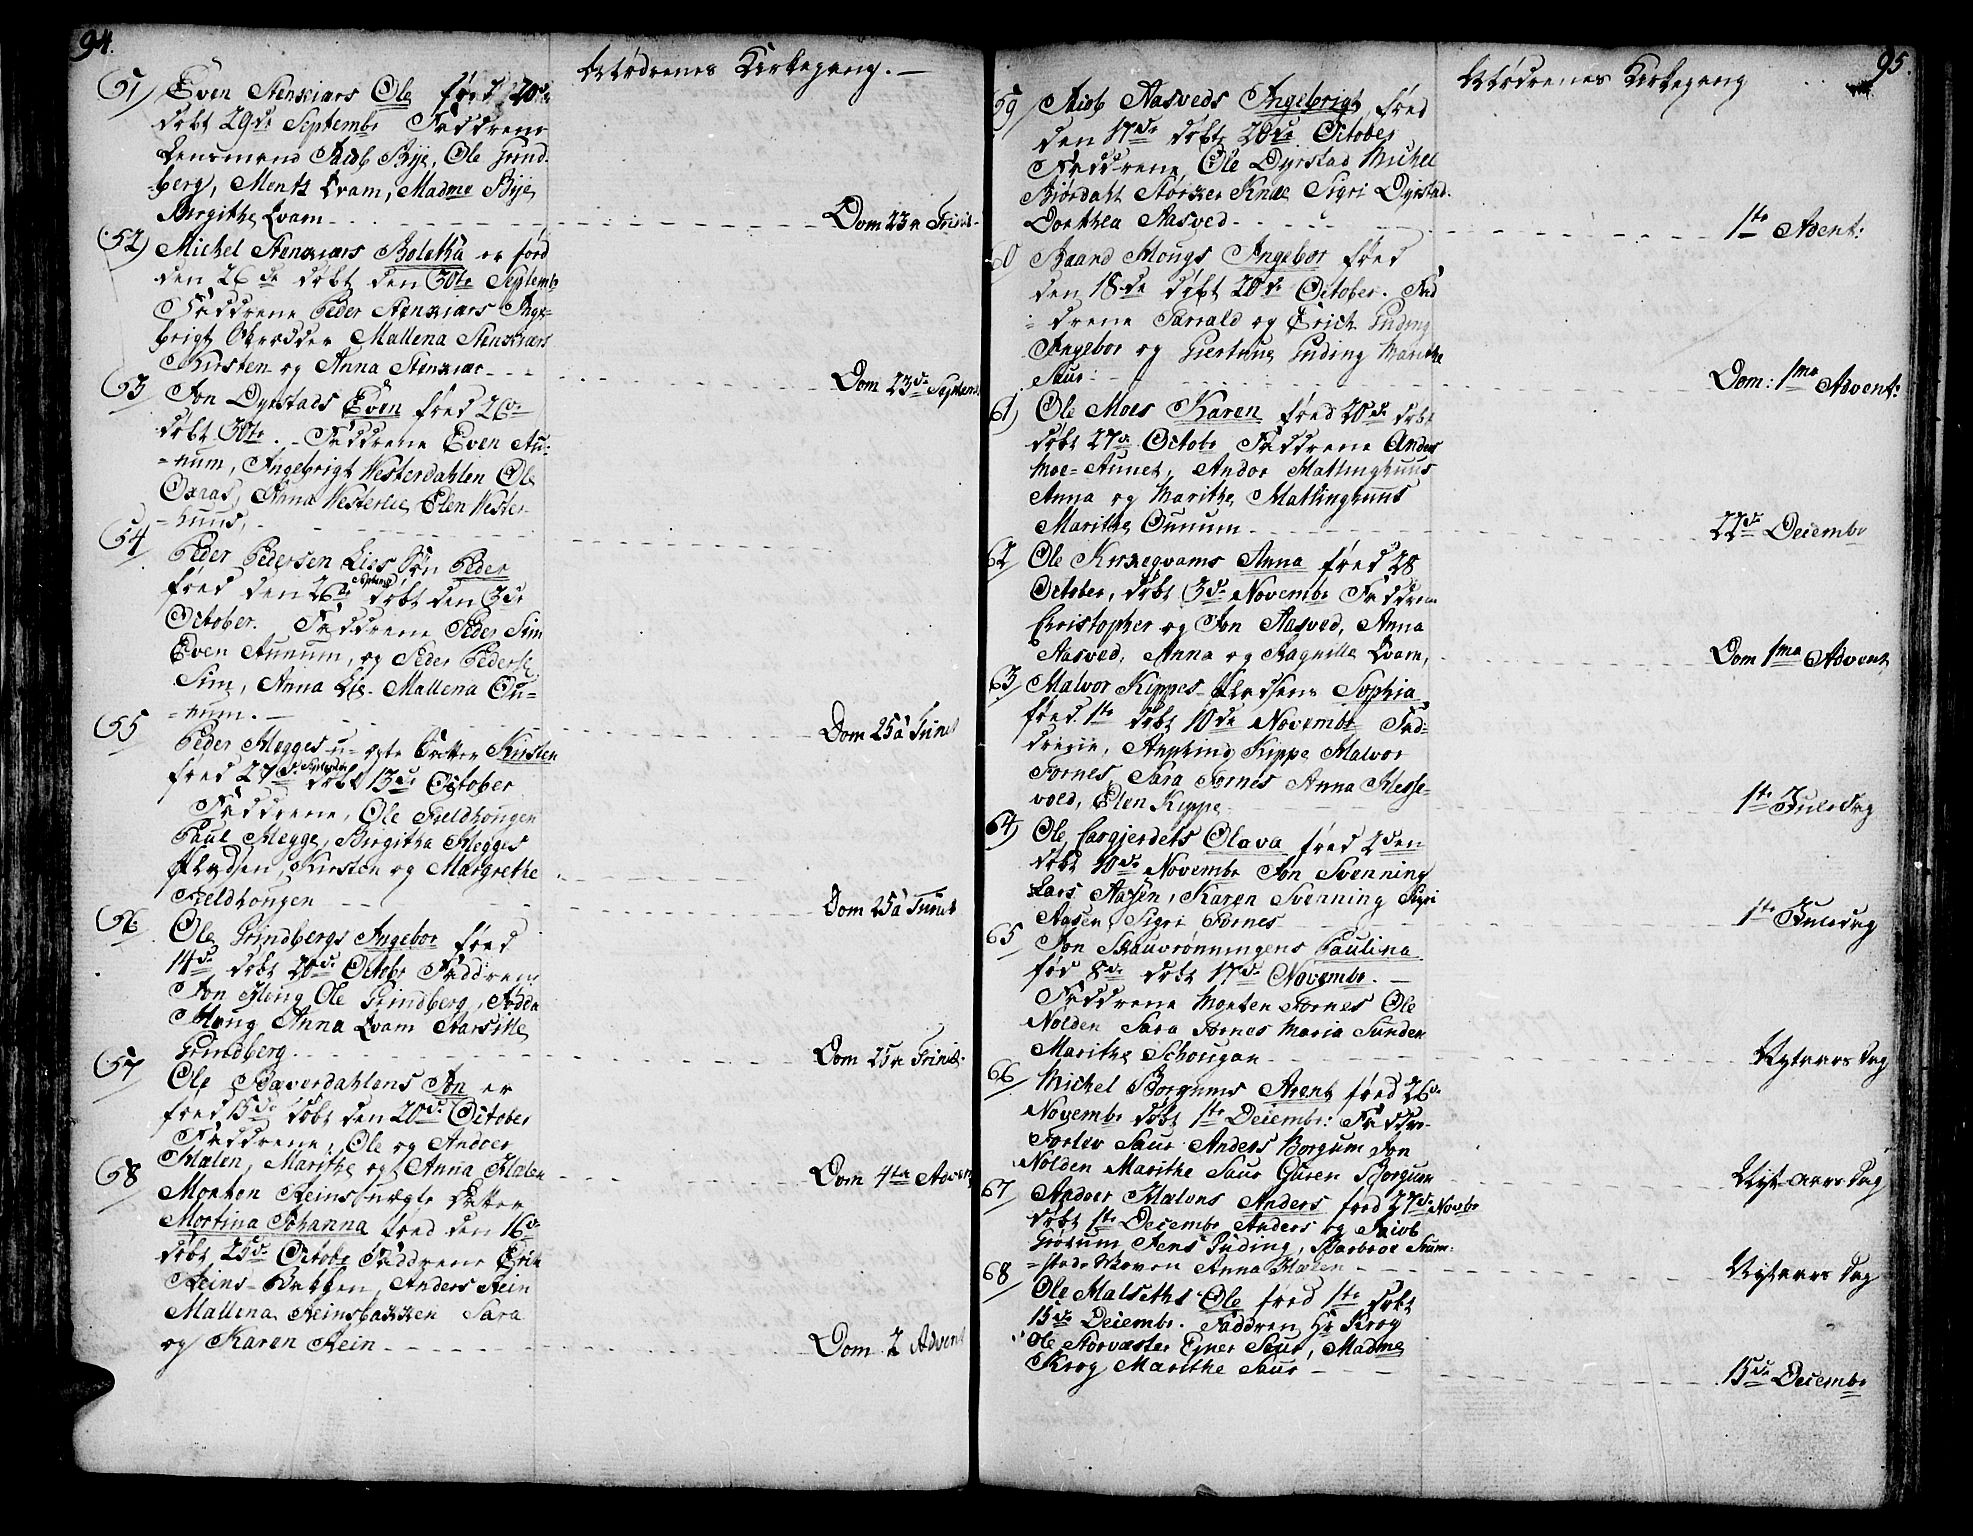 94.
Mødrenes Kirkegang. —
51/ Even Stenkiærs Ole fød 20de
døbt 29de Septembr Faddrene
Lensmand Jacob Bye, Ole Grind-
-berg, Mentz Qvam, Madme Bye
Birgithe Qvam - - - Dom 23 a Trinit.
52) Michel Stenkiærs Boletha er fød
den 26de døbt den 30te Septembr
Faddrene Peder Stenkiærs Inge-
brigt Mallena Stenkiærs
Kirsten og Anna Stenkiær - - - Dom 23de Septemb
53 Jon Dyrstads Even fød 26de
døbt 30te. - Faddrene Even Au-
-num, Ingebrigt Westerdahlen Ole
Oxaas, Anna Westerlie Elen Wester-
-huus,
54/ Peder Pedersen Lies Søn Peder
fød den 26de Septembr døbt den 3de
October. Faddrene Peder Sim
Even Aunum, og Peder Peders:
Sim, Anna Lie. Mallena Ou-
-num. — Dom 25 a Trinit
55 Peder Hegges u-ægte Datter Kirsten
fød 27de Septembr døbt 13de October
Faddrene, Ole Fieldhougen
Paul Hegge, Birgitha Hegges
Pladsen, Kirsten og Margrethe
Fieldhougen - - Dom 25 a Trinit
56/ Ole Grindbergs Ingebor fød
14de døbt 20de Octobr Faddrene
Jon Kling Ole Grindberg, Jødda
Houg Anna Qvam Marsille
Grindberg. - - Dom 25 a Trinit.
57/ Ole Baverdahlens Jon er
fød 15de døbt den 20de October
Faddrene, Ole og Andoer
Hælen, Marithe og Anna Hælen Dom 4ta Advent
58/ Morten Reins uægte Datter
Mortina Johanna fød den 16de
døbt 25de Octobr Faddrene Erik
Reins-Bakken, Anders Rein
Mallena Reinsbakken Sara
og Karen Rein - - - Dom 2 Advent
95.
Mødrenes Kirkegang
59 Jacob Aasveds Ingebrigt fød
den 17de døbt 20de October
Faddrene, Ole Dyrstad Michel
Biørdahl Størker Knæ Sigri Dyrstad
Dorthea Aasved - - 1te Advent:
60 Baard Hougs Ingebor fød
den 18de døbt 20de October. Fad
-drene Harrald og Erich Guding
Ingebor og Giertrug Guding Marithe
Saur. - - Dom: 1ma Advent:
61) Ole Moes Karen fød 20de døbt
døbt 27de Octobr Faddrene Anders
Moe-Aunet, Andor Mallinghuus
Anna og Marithe Mallinghuus
Marithe Ounum - - 22de Decembr
62 Ole Knxeqvams Anna fød 28
October, døbt 3de Novembr Faddrene
Christopher og Jon Aasved, Anna
Aasved, Anna og Ragnille Qvam, Dom 1ma Advent
63/ Halvor Kippes-Pladsens Sophia
fød 1te døbt 10de Novembr Fad-
drene, Kippe Halvor
Fornes, Sara Fornes Anna Hesse-
vold, Elen Kippe - - 1te Juledag
64) Ole Cargierdets Olava fød 2den
døbt 10de Novembr Jon Svenning
Lars Aasen, Karen Svenning Sigri
Aasen, Sigri Fornes - - 1te Juledag
65/ Jon Skauvrønningens Paulina
fød 8de døbt 17de Novembr. —
Faddrene Morten Fornes Ole
Nolden Sara Fornes Maria Sunden
Marithe Schougan - - Nytaars dag
66/ Michel Borgums Arent fød 26de
Novembr døbt 1te Decembr: Faddr-
Torlev Saur Anders Borgum Jon
Nolden Marithe Saur Guren Borgum Nyt-aarsdag
67/ Andoer Hælens Anders fød 27de Novbr
døbt 1te Decembr Anders og Jacob
Giørum Jens Guding, Barbroe Stum-
-stad-Moven Anna Hælen - - Nytaarsdag
68/ Ole Malseths Ole fød 1te døbt
15de Decembr. Faddren Hr Krog
Ole Storvæster Ejner Saur, Madme
Krog Marithe Saur - - 15de Decembr